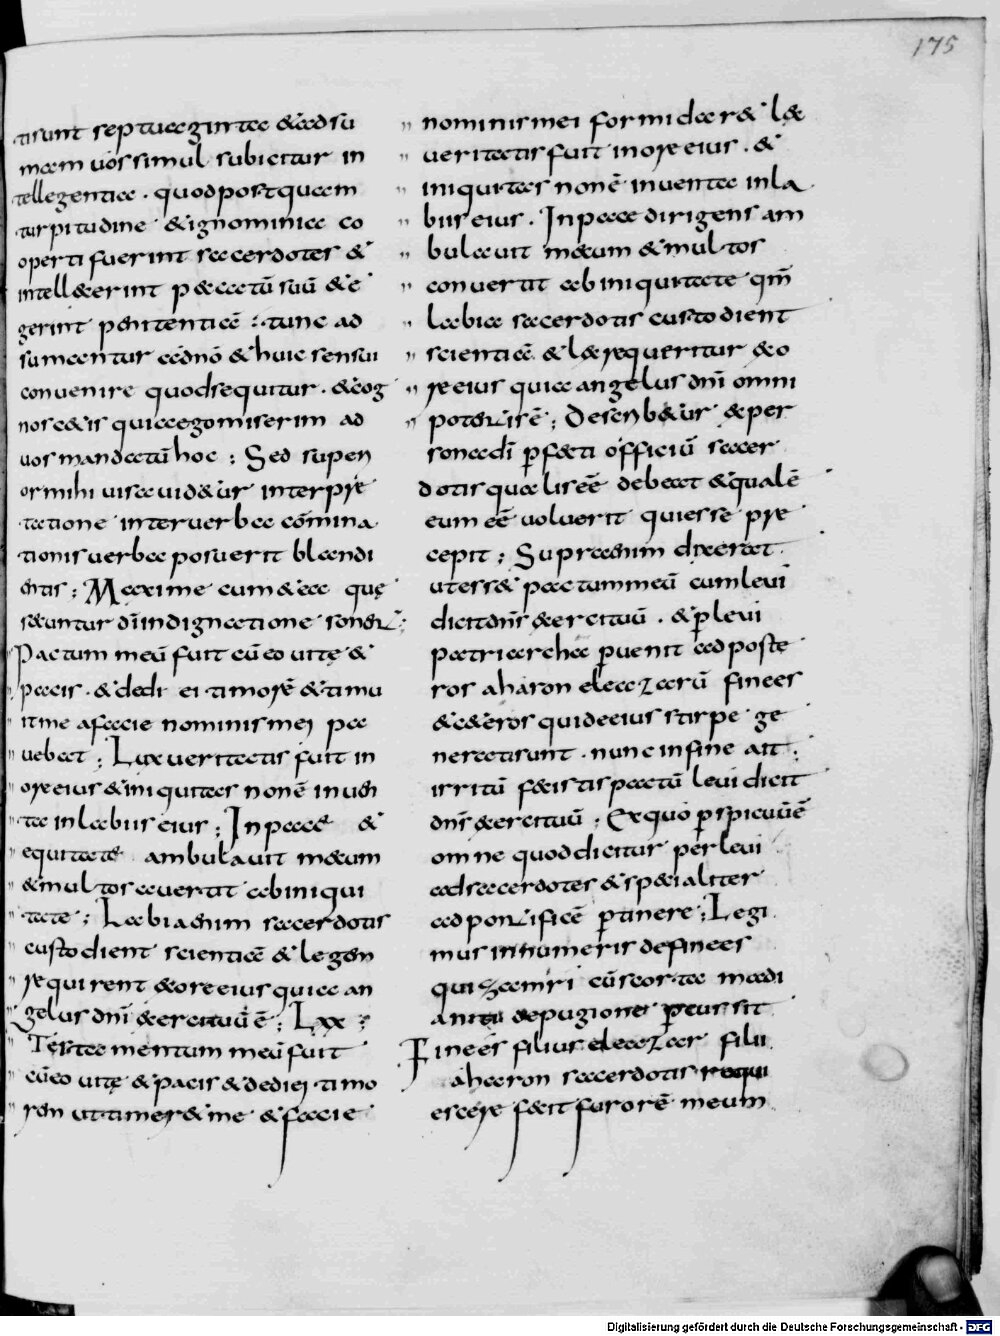 175
tisunt septuaginta & adsu
mam uos simul subicitur in
tellegentia. quodpostquam
turpitudine & ignominia co
operti fuerint sacerdotes &
intellexerint peccatū suū & e
gerint penitentiā; tunc ad
sumantur addnō & huic sensui
conuenire quodsequitur. & cog
noscetis quiaegomiserim ad
uos mandatū hoc; Sed superi
ormihi uisa uidetur interpre
tatione interuerba cōmina
tionis uerba posuerit blandi
entis; Maxime cum & ea quę
secuntur dī indignatione sonent;
Pactum meū fuit cū eo uitę &
pacis. & dedi ei timorē & timu
it me a facie nominis mei pa
uebat; Lux ueritatis fuit in
ore eius & iniquitas non ē inuen
ta in labiis eius; In pace &
equitate ambulauit mecum
& multos auertit ab iniqui
tate; Labia enim sacerdotis
custodient scientiā & legem
requirent & ore eius quia an
gelus dnī exercituū ē; Lxx;
Testamentum meū fuit
cū eo uitę & pacis & dedi ei timo
rem ut timeret me & a facie
nominis mei formidaret & lex
ueritatis fuit in ore eius. &
iniquitas non ē inuenta in la
biis eius. In pace dirigens am
bulauit mecum & multos
conuertit ab iniquitate qm̄
labia sacerdotis custodient
scientiā & lex requeritur & o
re eius quia angelus dnī omni
potentis ē; Describetur & per
sona dī perfecti officiū sacer
dotis qualis eē debeat & qualē
eum eē uoluerit qui esse pre
cepit; Supra enim dixerat
ut esset pactum meū cum leui
dicit dns exercituū. & per leui
patriarcha peruenit ad poste
ros aharon eleazarū finees
& ceteros qui de eius stirpe ge
nerati sunt. nunc in fine ait;
irritū fecistis pactū leui dicit
dns exercituū; Ex quo perspicuū ē
omne quod dicitur per leui
ad sacerdotes & specialiter
ad pontificē pertinere; Legi
mus in numeris de finees
qui zamri cū scorta madi
anitu de pugione percussit
Finees filius eleazar filii
aharon sacerdotis requi
escere fecit furorē meum
Digitalisierung gefördert durch die Deutsche Forschungsgemeinschaft - DFG